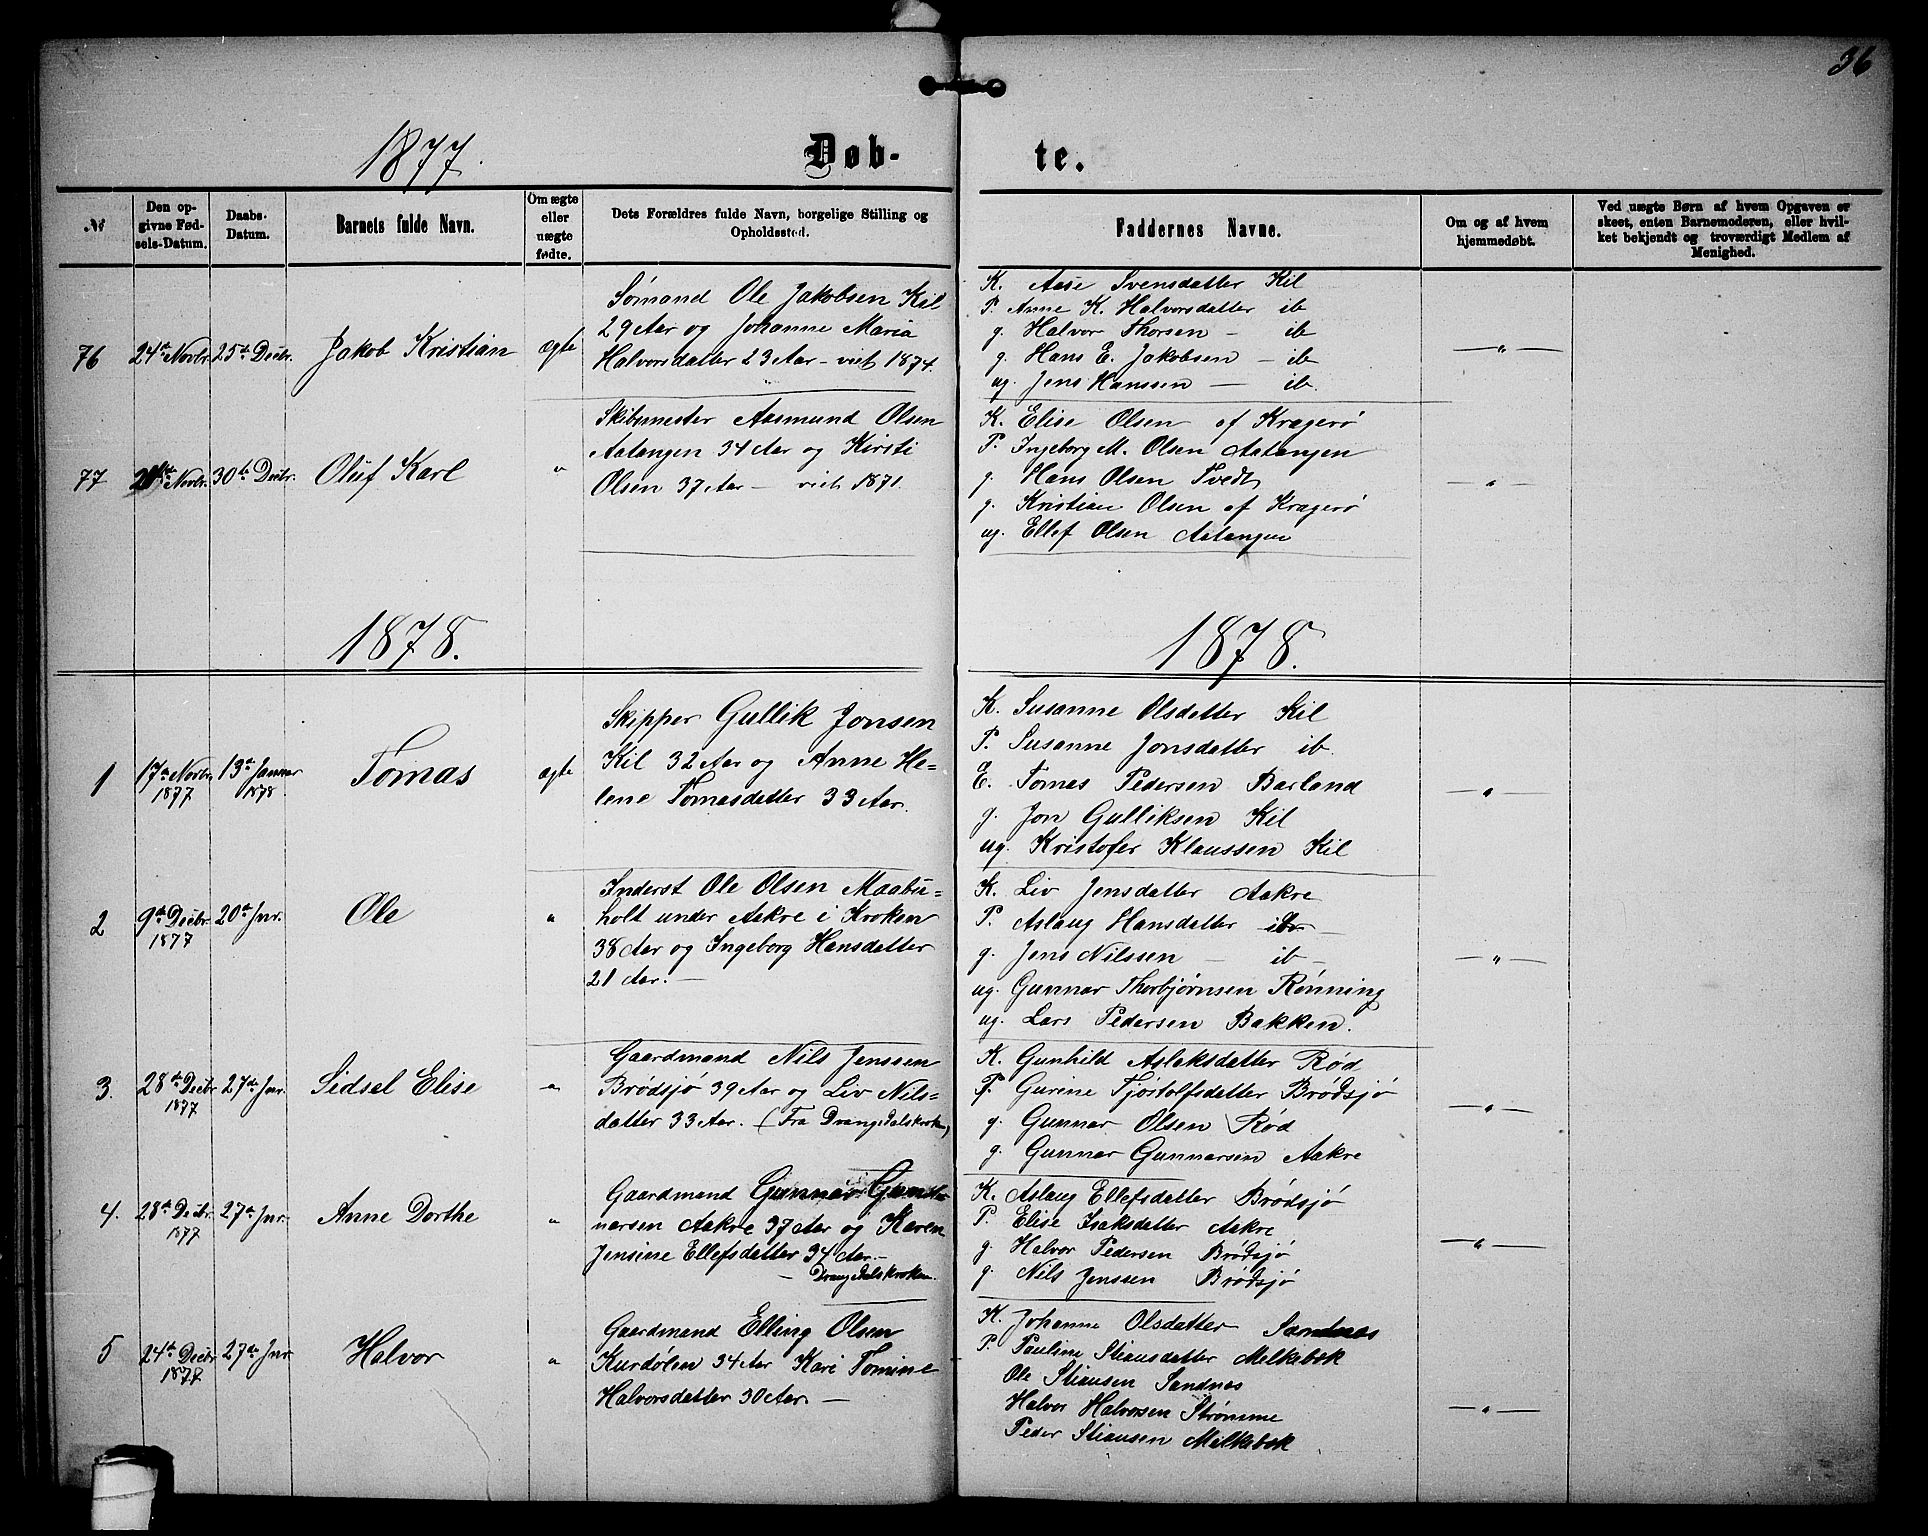 36
1877.
Døb-
te.
№
Den opgivne Fødsels-Datum.
Daabs-Datum.
Barnets fulde Navn.
Om ægte eller uægte fødte.
Dets Forældres fulde Navn, borgelige Stilling og Opholdssted.
Faddernes Navne.
Om og af hvem hjemmedøbt.
Ved uægte Børn af hvem Opgaven er skeet, enten Barnemoderen, eller hvilket bekjendt og troværdigt Medlem af Menighed.
76 24de Novbr. 25de Decbr. Jakob Kristian ægte
Sømand Ole Jakobsen Kil
29 Aar og Johanne Maria
Halvorsdatter 23 Aar – viet 1874.
K. Aase Svensdatter Kil
P. Anne K. Halvorsdatter ib
g. Halvor Thorsen — ib
g. Hans E. Jakobsen — ib
ug. Jens Hanssen — ib.
— " —
77 Novbr. 30te Decbr. Oluf Karl "
Skibsmester Aasmund Olsen
Aatangen 34 Aar og Kirsti
Olsen 37 Aar — viet 1871.
K. Elise Olsen af Kragerø
P. Ingeborg M. Olsen Aatangen
g. Hans Olsen Tvedt
g. Kristian Olsen af Kragerø
ug. Ellef Olsen Aatangen
— " —
1878.
1878.
1 17de Novbr. 1877 13de Januar 1878 Tomas ægte
Skipper Gullik Jonsen
Kil 32 Aar og Anne He=
lene Tomasdatter 33 Aar.
K. Susanne Olsdatter Kil
P. Susanne Jonsdatter ib.
E. Tomas Pedersen Barland
g. Jon Gulliksen Kil
ug. Kristofer Klaussen Kil
— " —
2 9de Decbr. 1877 20de Jnr. Ole "
Inderst Ole Olsen Maabu=
holt under Aakre i Kroken
38 Aar og Ingeborg Hansdatter
21 Aar. —
K. Liv Jensdatter Aakre
P. Aslaug Hansdatter ib —
g. Jens Nilssen — ib —
ug. Gunnar Thorbjørnsen Rønning
ug. Lars Pedersen Bakken.
— " —
3. 28de Decbr 1877 27de Jnr. Sidsel Elise "
Gaardmand Nils Jenssen
Brødsjø 39 Aar og Liv Nils=
datter 33 Aar. (Fra Drangedalskroken)
K. Gunhild Aslaksdatter Rød
P. Gurine Tjostolfsdatter Brødsjø
g. Gunnar Olsen Rød
g. Gunnar Gunnarsen Aakre
— " —
4. 28de Decbr. 1877 27de Jnr. Anne Dorthe "
Gaardmand Gunnar Gun=
narsen Aakre 37 Aar og Karen
Jensine Ellefsdatter 34 Aar. —
— Drangedalskroken.
K. Aslaug Ellefsdatter Brødsjø
P. Elise Isaksdatter Aakre
g. Halvor Pedersen Brødsjø
g. Nils Jenssen Brødsjø
— " —
5 24de Decbr 1877 27de Jnr Halvor "
Gaardmand Elling Olsen
Kurdølen 34 Aar Kari Tomine
Halvorsdatter 30 Aar. —
K. Johanne Olsdatter Sandnes
P. Pauline Stiansdatter Melkebek
Ole Stiansen Sandnes
Halvor Halvorsen Strømme
Peder Stiansen Melkebek
— " —